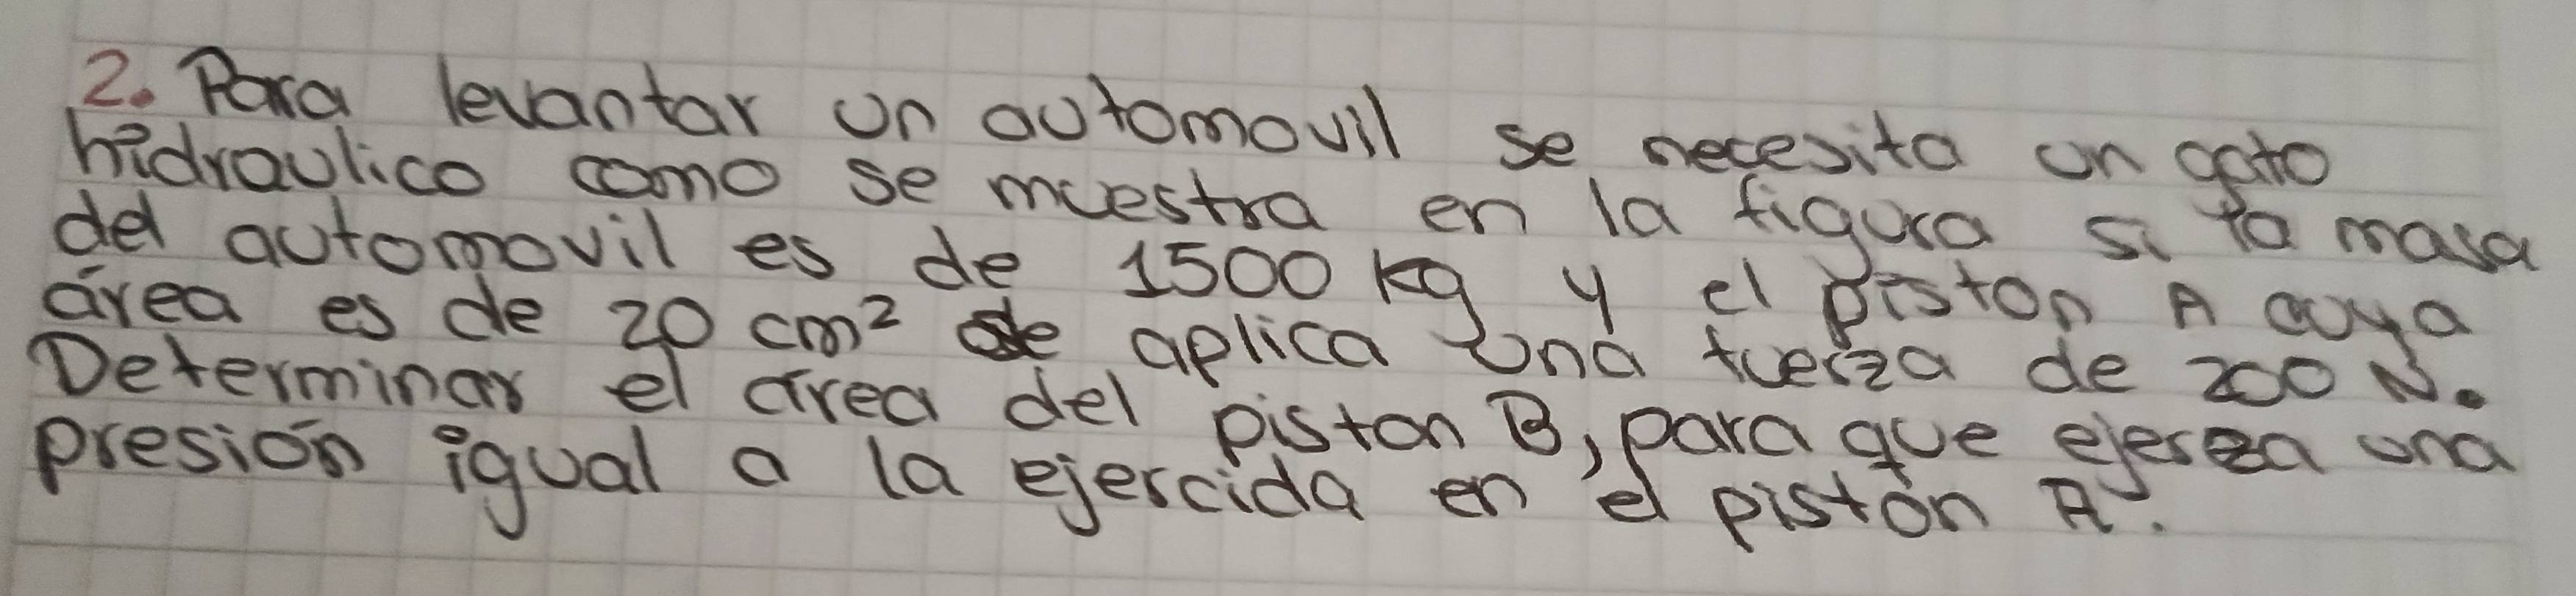 2. Para levantar un automovil se necesita un gato
hidraulico como se muestra en la figura si la masa
del automovil es de 1500 kg y el piston A cuya
área es de 20 cm² se aplica una fuerza de 200 N.
Determinar el área del piston B, para que ejerza una
presión igual a la ejercida en el pistón A.